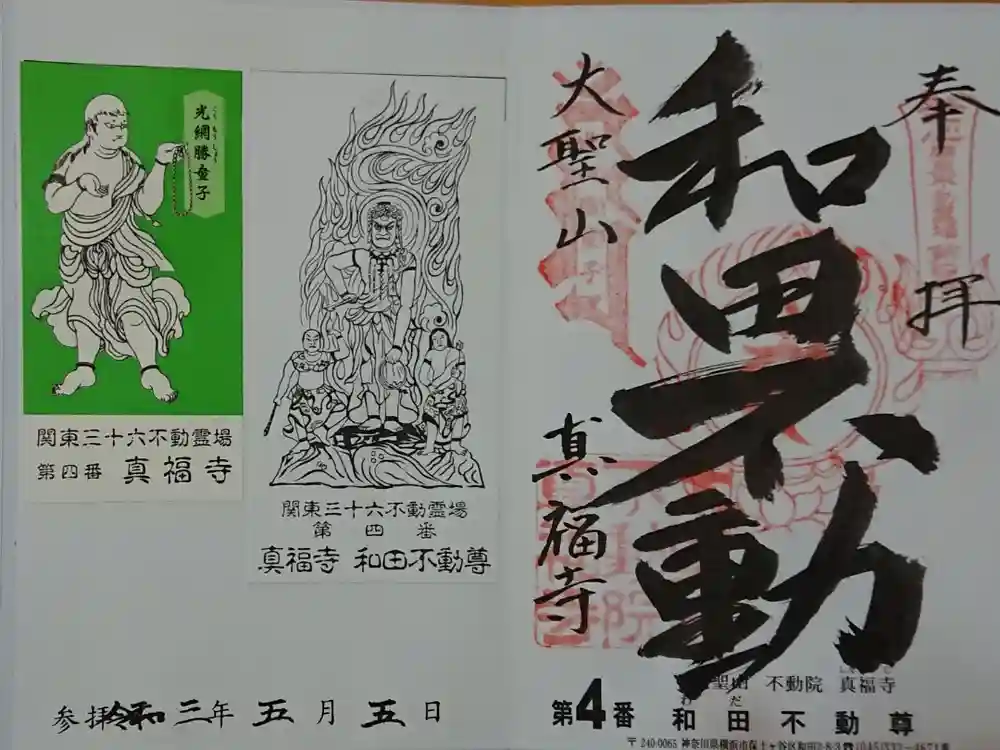 奉拝
和田不動
大聖山
真福寺
第4番 和田不動尊
わだ
聖山 不動院 真福寺
〒240-0065 神奈川県横浜市保土ヶ谷区和田
光網勝童子
こうもうしょう
関東三十六不動霊場
第四番 真福寺
関東三十六不動霊場
第四番
真福寺 和田不動尊
参拝令和三年五月五日